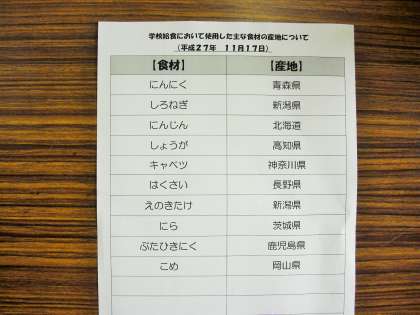 学校給食において使用した主な食材の産地について
（平成27年 11月17日）
【食材】 【産地】
にんにく 青森県
しろねぎ 新潟県
にんじん 北海道
しょうが 高知県
キャベツ 神奈川県
はくさい 長野県
えのきたけ 新潟県
にら 茨城県
ぶたひきにく 鹿児島県
こめ 岡山県